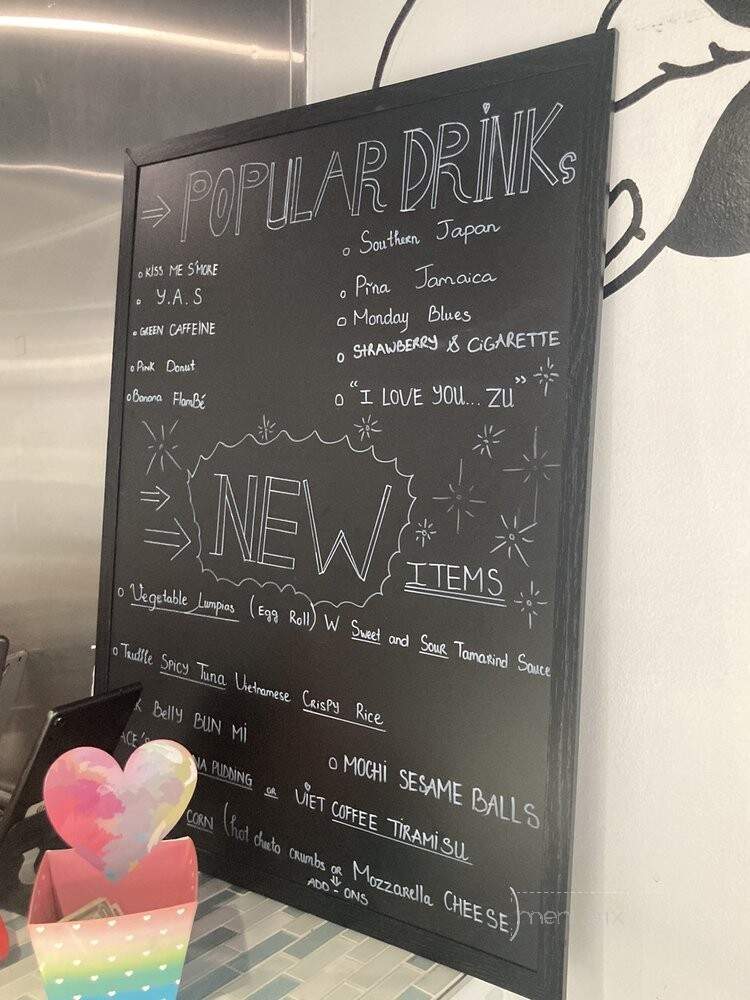 POPULAR DRINKS
KISS ME S'MORE
Y.A.S
GREEN CAFFEINE
PINK Donut
Banana FlamBé
Southern Japan
Pina Jamaica
Monday Blues
STRAWBERRY & CIGARETTE
"I LOVE YOU... ZU"
NEW
ITEMS
Vegetable Lumpias (Egg Roll) W Sweet and Sour Tamarind Sauce
Truffle SPICY Tuna Vietnamese CRISPY Rice
Belly BUN MI
MOCHI SESAME BALLS
PUDDING OR VIET COFFEE TIRAMISU
CORN (hot cheeto crumbs OR Mozzarella CHEESE)
ADD-ONS